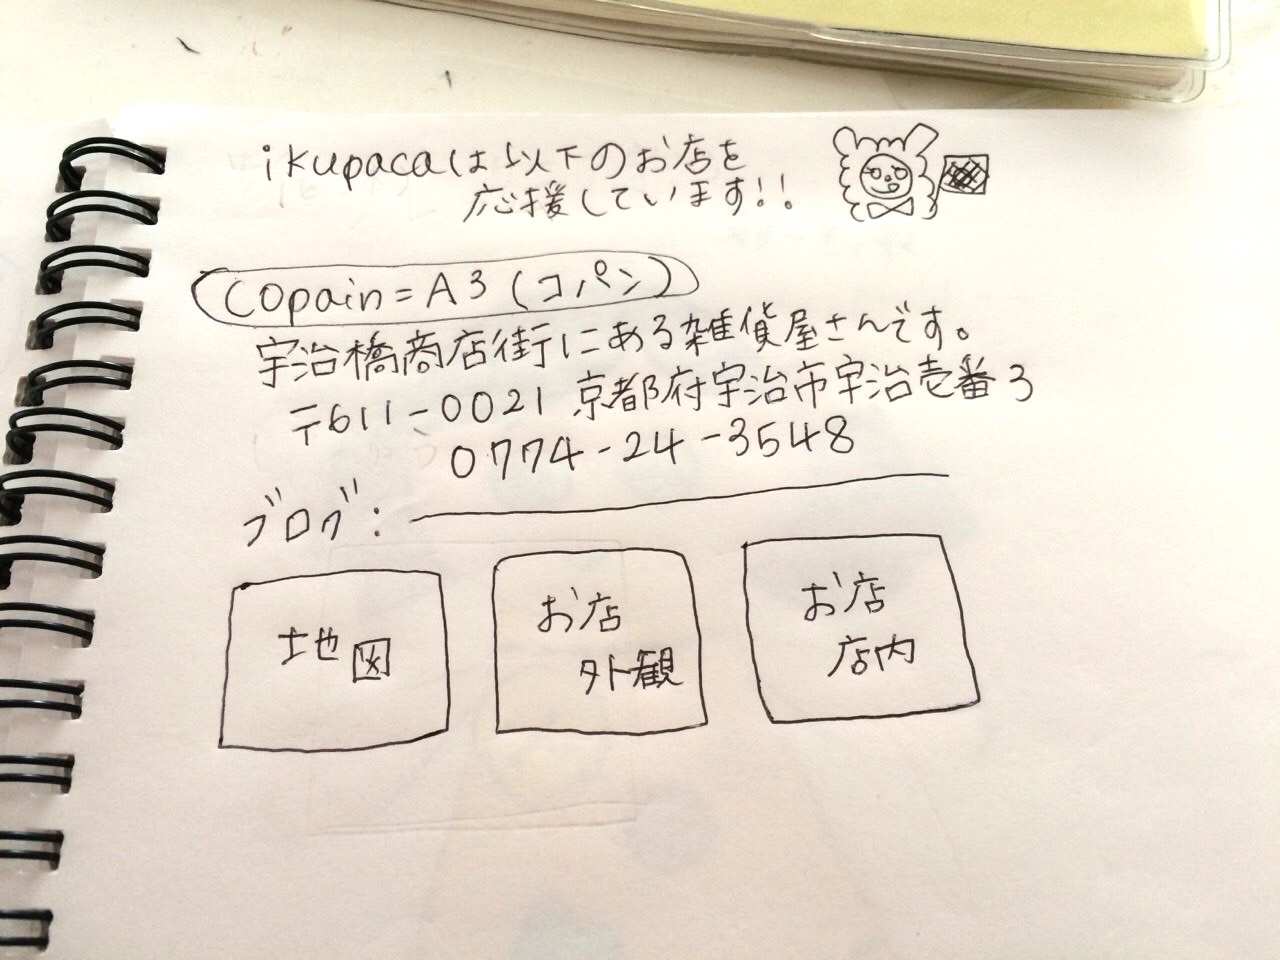 ikupacaは以下のお店を
応援しています!!
Copain=A3(コパン)
宇治橋商店街にある雑貨屋さんです。
〒611-0021 京都府宇治市宇治壱番3
0774-24-3548
ブログ:
地図
お店
外観
お店
店内